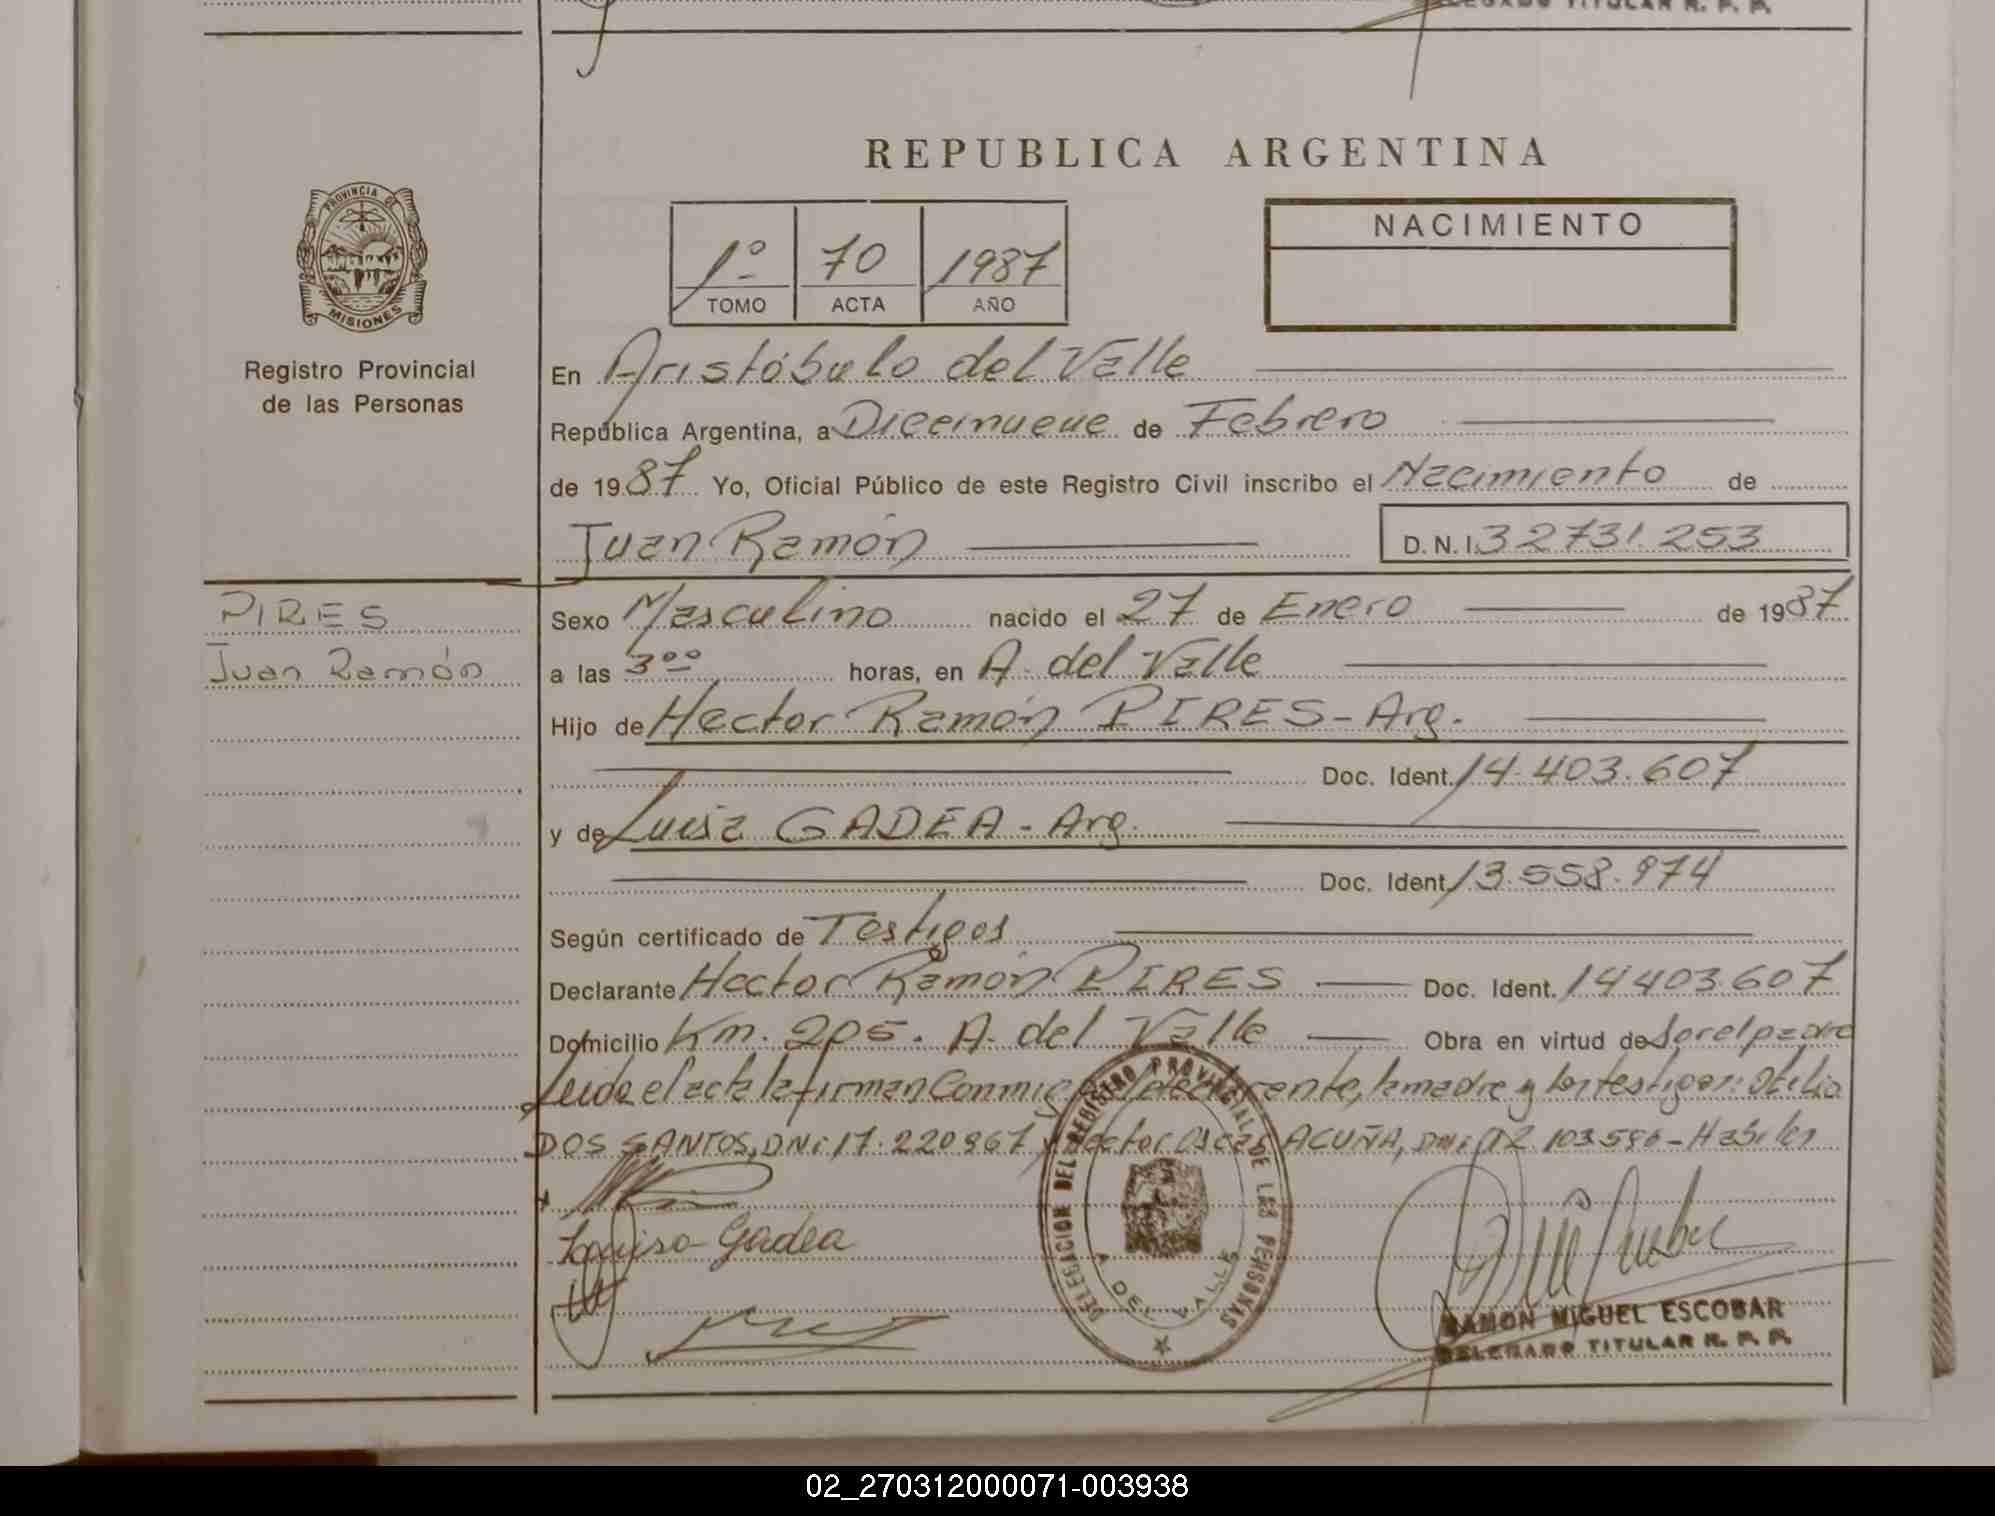 DELEGADO TITULAR R. P. P.
REPUBLICA ARGENTINA
PROVINCIA DE
MISIONES
Registro Provincial
de las Personas
1º 70 1987
TOMO ACTA AÑO
NACIMIENTO
En Aristóbulo del Valle
República Argentina, a Diecinueve de Febrero
de 1987 Yo, Oficial Público de este Registro Civil inscribo el Nacimiento de
Juan Ramón D.N.I. 32731.253
PIRES
Juan Ramón
Sexo Masculino nacido el 27 de Enero de 1987
a las 3ºº horas, en A. del Valle
Hijo de Hector Ramón PIRES - Arg.
Doc. Ident. 14.403.607
y de Luisa GADEA - Arg.
Doc. Ident. 13.558.974
Según certificado de Testigos
Declarante Hector Ramón PIRES Doc. Ident. 14403607
Domicilio Km. 205. A. del Valle Obra en virtud de Ser el padre
Leida el acta la firman Conmigo el declarante, la madre y los testigos: Otilia
DOS SANTOS, DNi 17.220967 y Hector Oscar ACUÑA, DNi 12.103586 - Habiles
Gadea
DELEGACION DEL REGISTRO PROVINCIAL DE LAS PERSONAS
A DEL VALLE
RAMON MIGUEL ESCOBAR
DELEGADO TITULAR R. P. P.
02_270312000071-003938